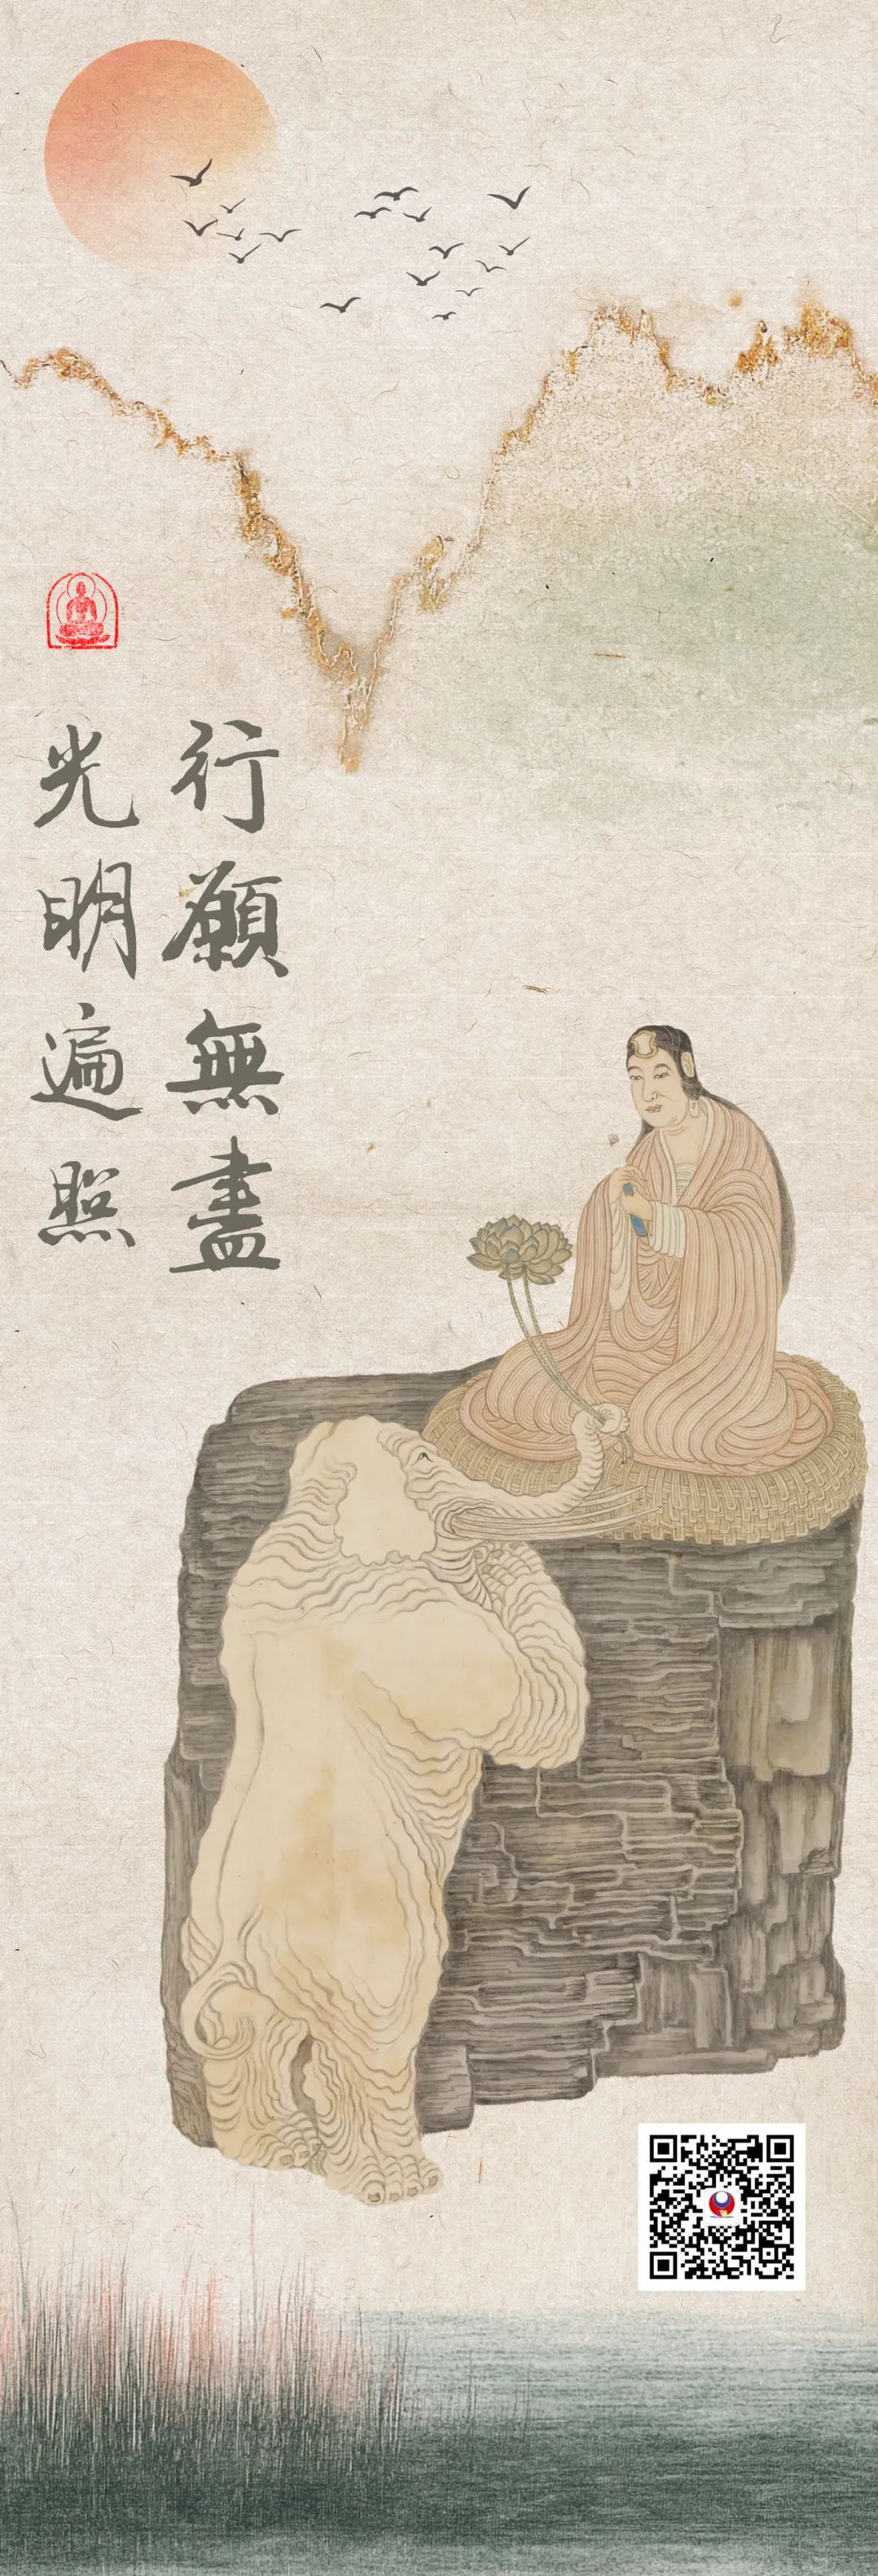 行願無盡
光明遍照